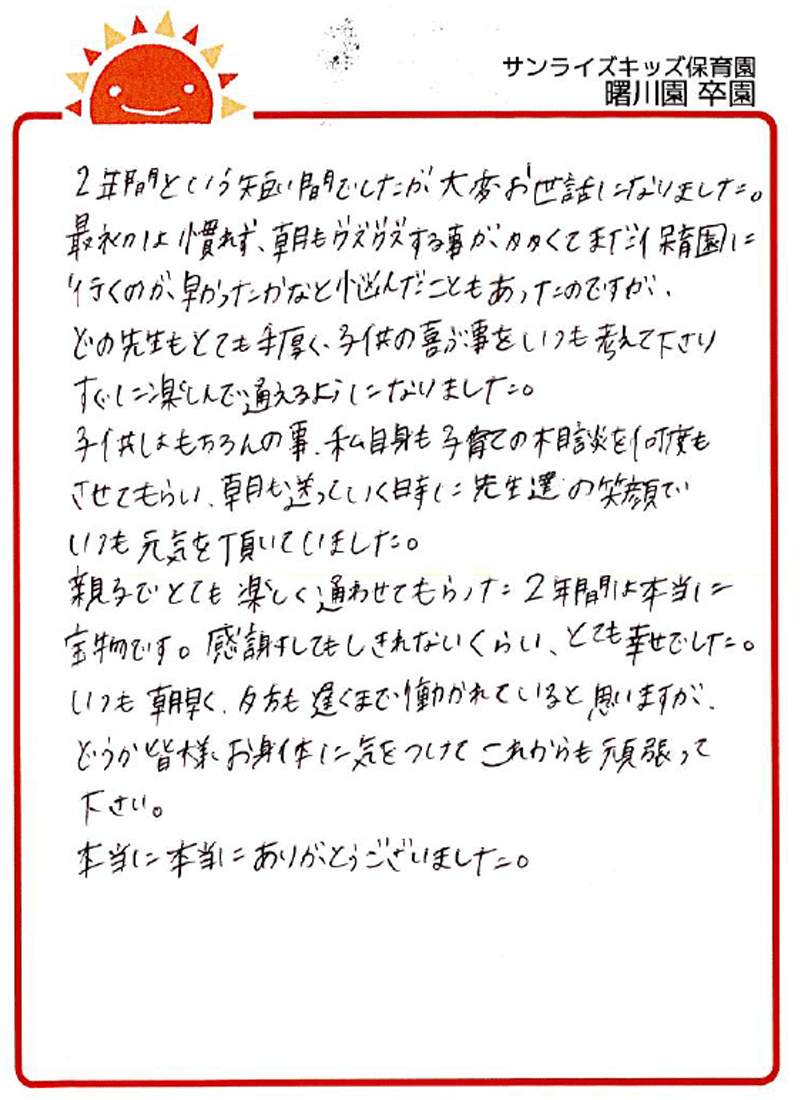 サンライズキッズ保育園
曙川園 卒園
2年間という短い間でしたが大変お世話になりました。
最初は慣れず、朝もグズグズする事が多くてまだ保育園に
行くのが、早かったかなと悩んだこともあったのですが、
どの先生もとても手厚く、子供の喜ぶ事をいつも考えて下さり
すぐに楽しんで通えるようになりました。
子供はもちろんの事、私自身も子育ての相談を何度も
させてもらい、朝も送っていく時に先生達の笑顔で
いつも元気を頂いていました。
親子でとても楽しく通わせてもらった2年間は本当に
宝物です。感謝してもしきれないくらい、とても幸せでした。
いつも朝早く、夕方も遅くまで働かれていると思いますが、
どうか皆様お身体に気をつけてこれからも頑張って
下さい。
本当に本当にありがとうございました。